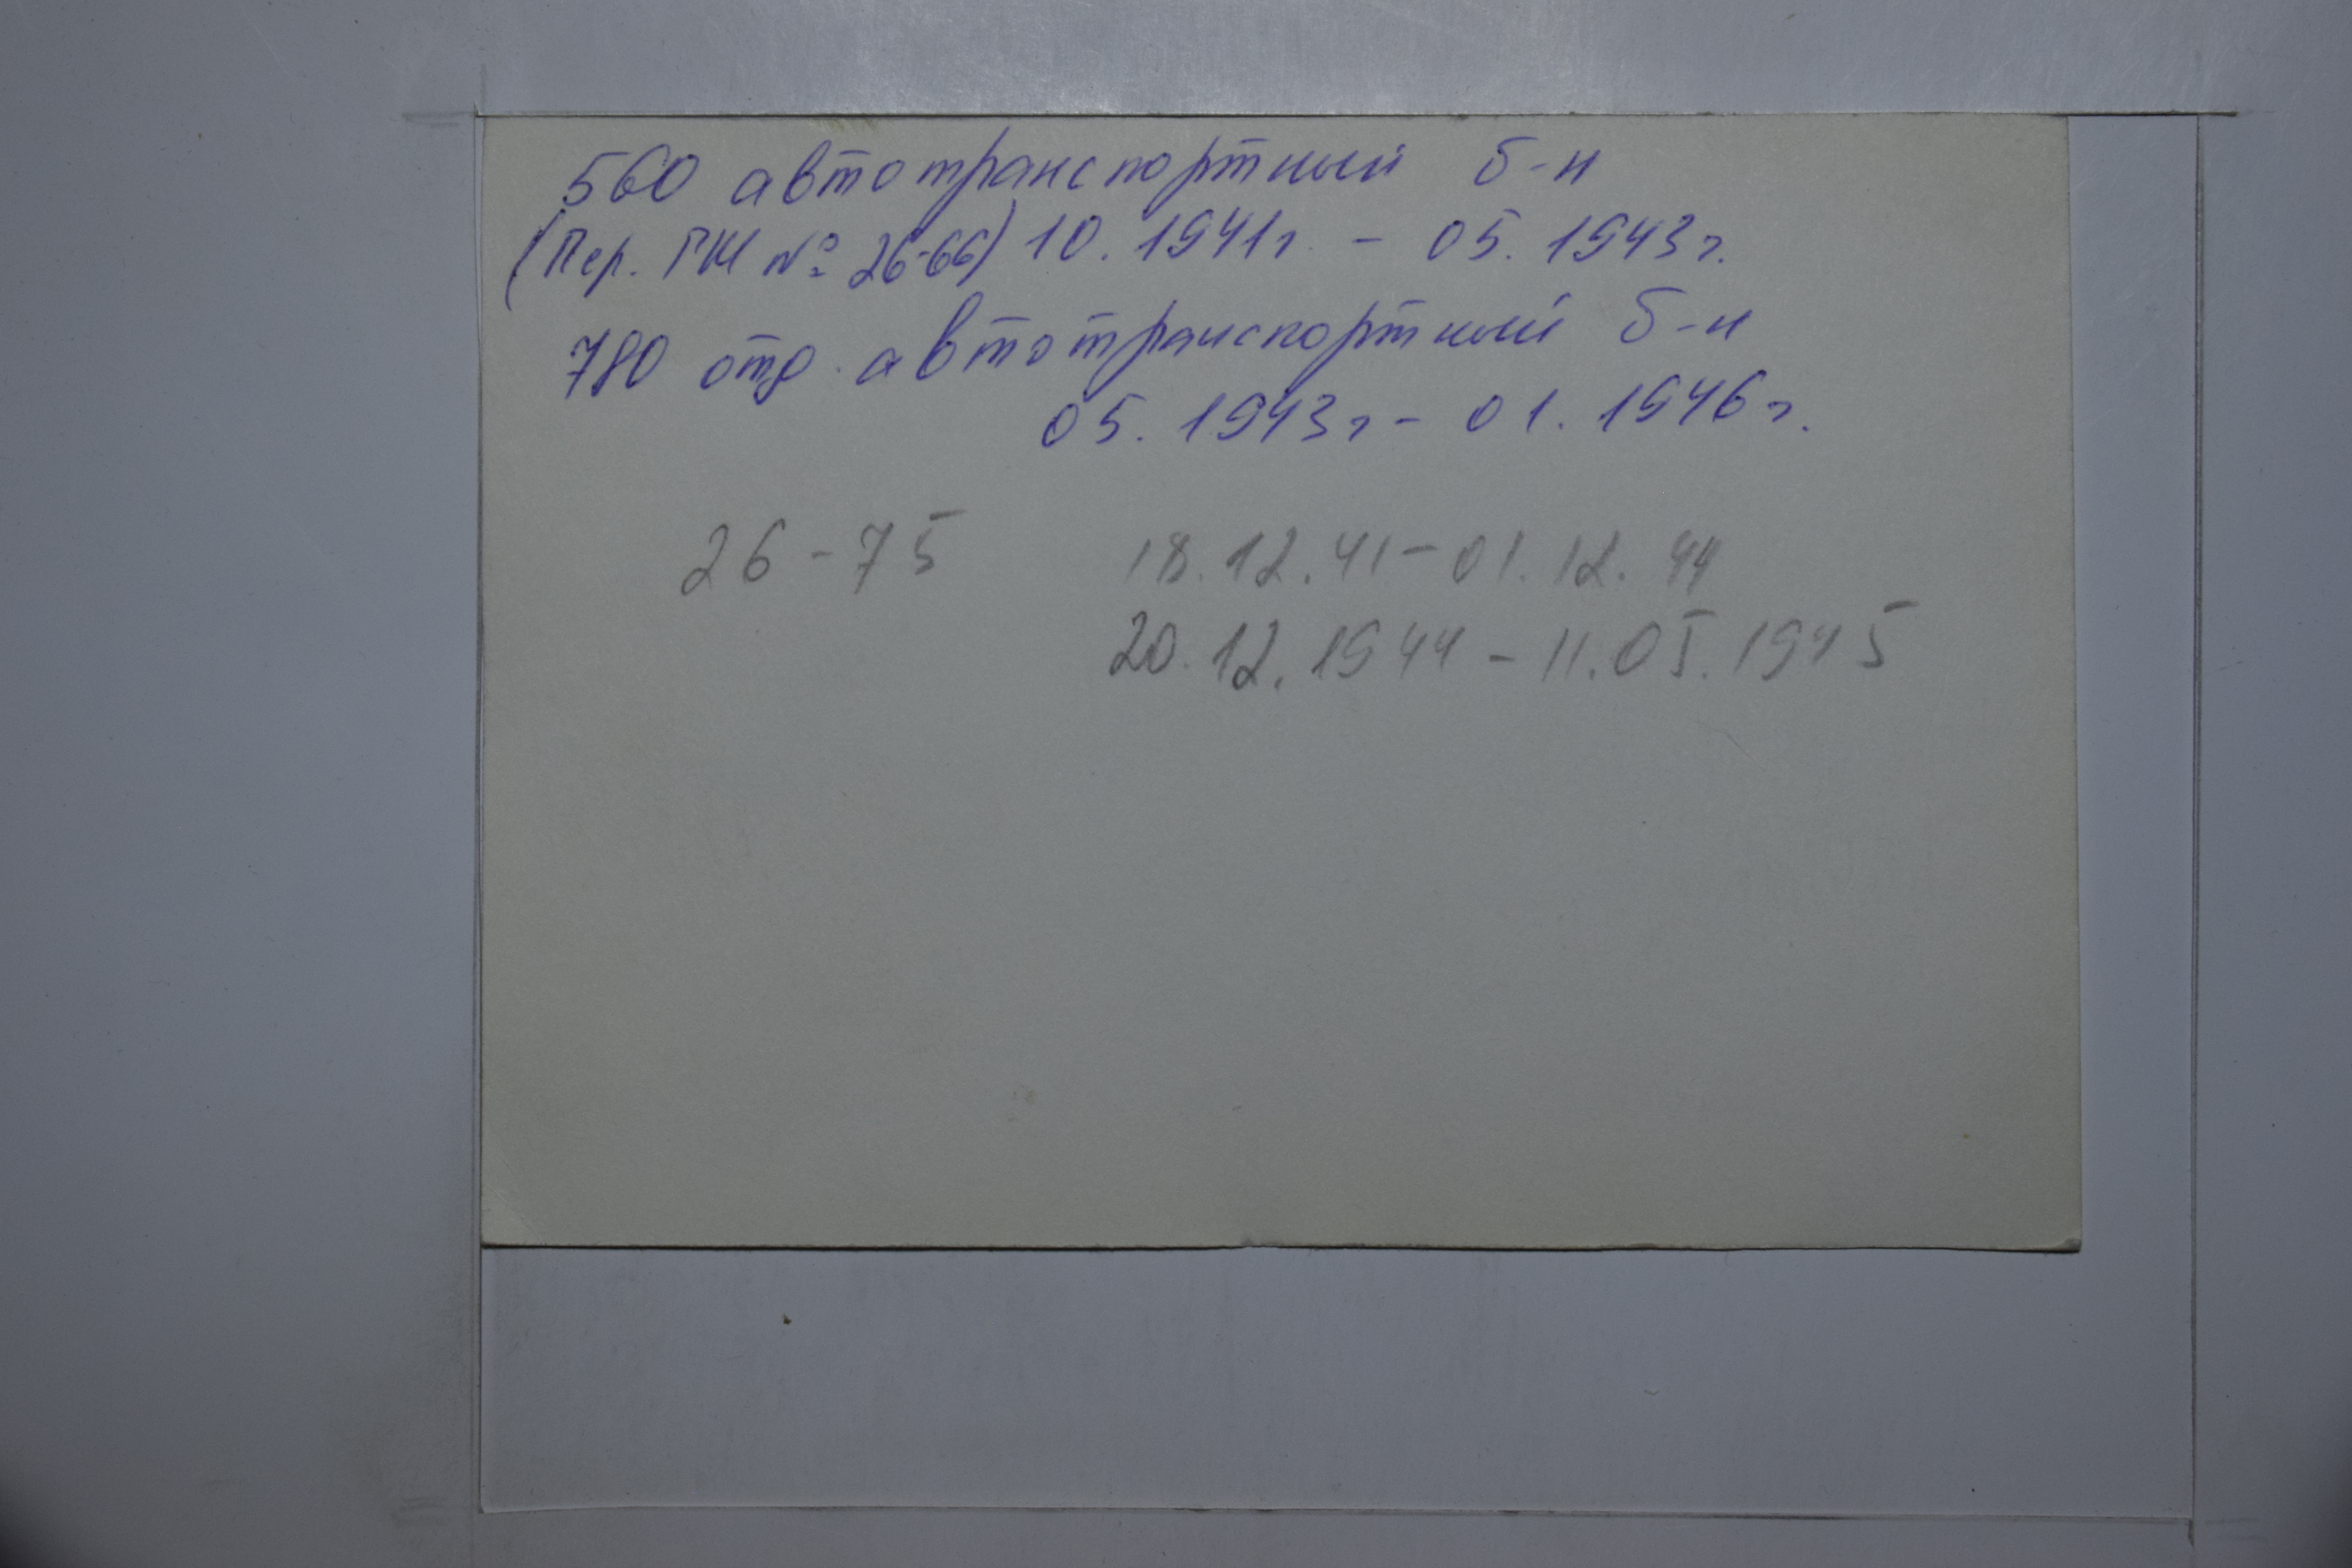 560 автотранспортный б-н
(Пер. ГШ № 26-66) 10. 1941г. - 05. 1943г.
780 отд. автотранспортный б-н
05. 1943г - 01. 1946г.
26-75 18.12.41-01.12.44
20.12.1944-11.05.1945